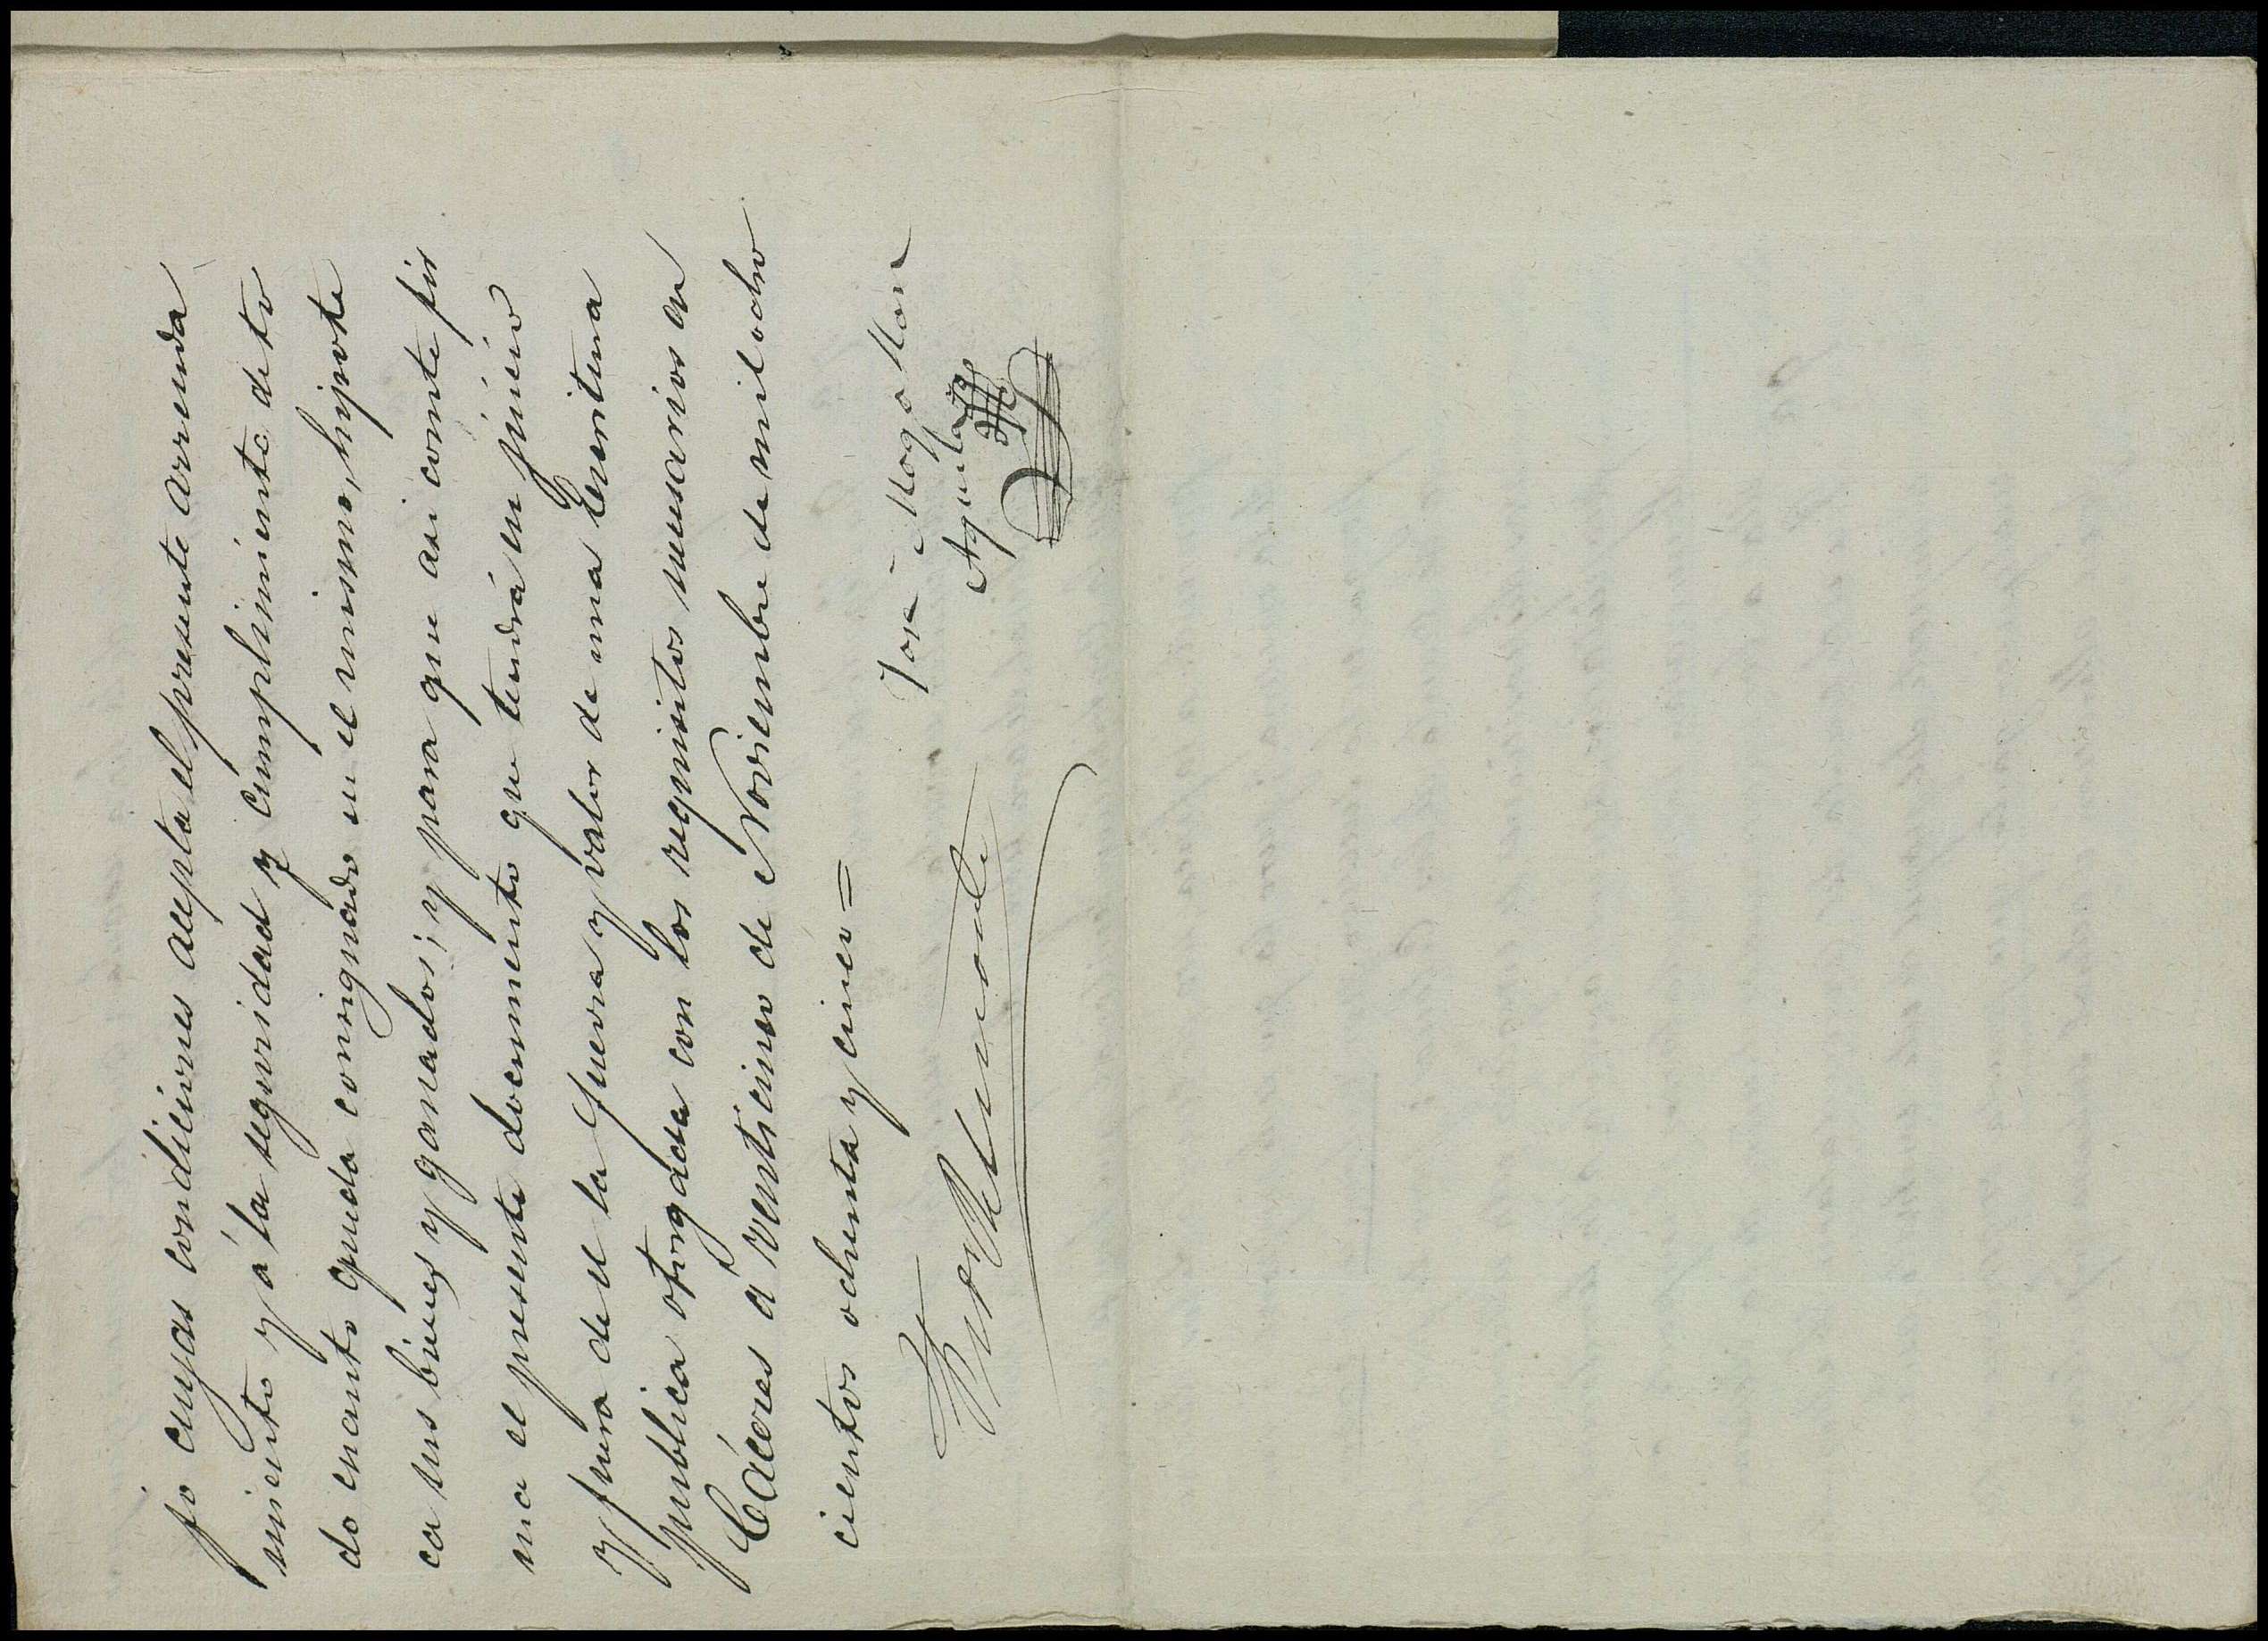 jo cuyas condiciones acepta el presente arrenda
miento y á la seguridad y cumplimiento de to
do cuanto queda consignado en el mismo, hipote
ca sus bienes y ganados; y para que asi conste fir
ma el presente documento que tendrá en juicio
y fuera de el la fuerza y valor de una Escritura
publica otorgada con los requisitos necesarios en
Cáceres á venticinco de Noviembre de mil ocho
cientos ochenta y cinco =
Jose